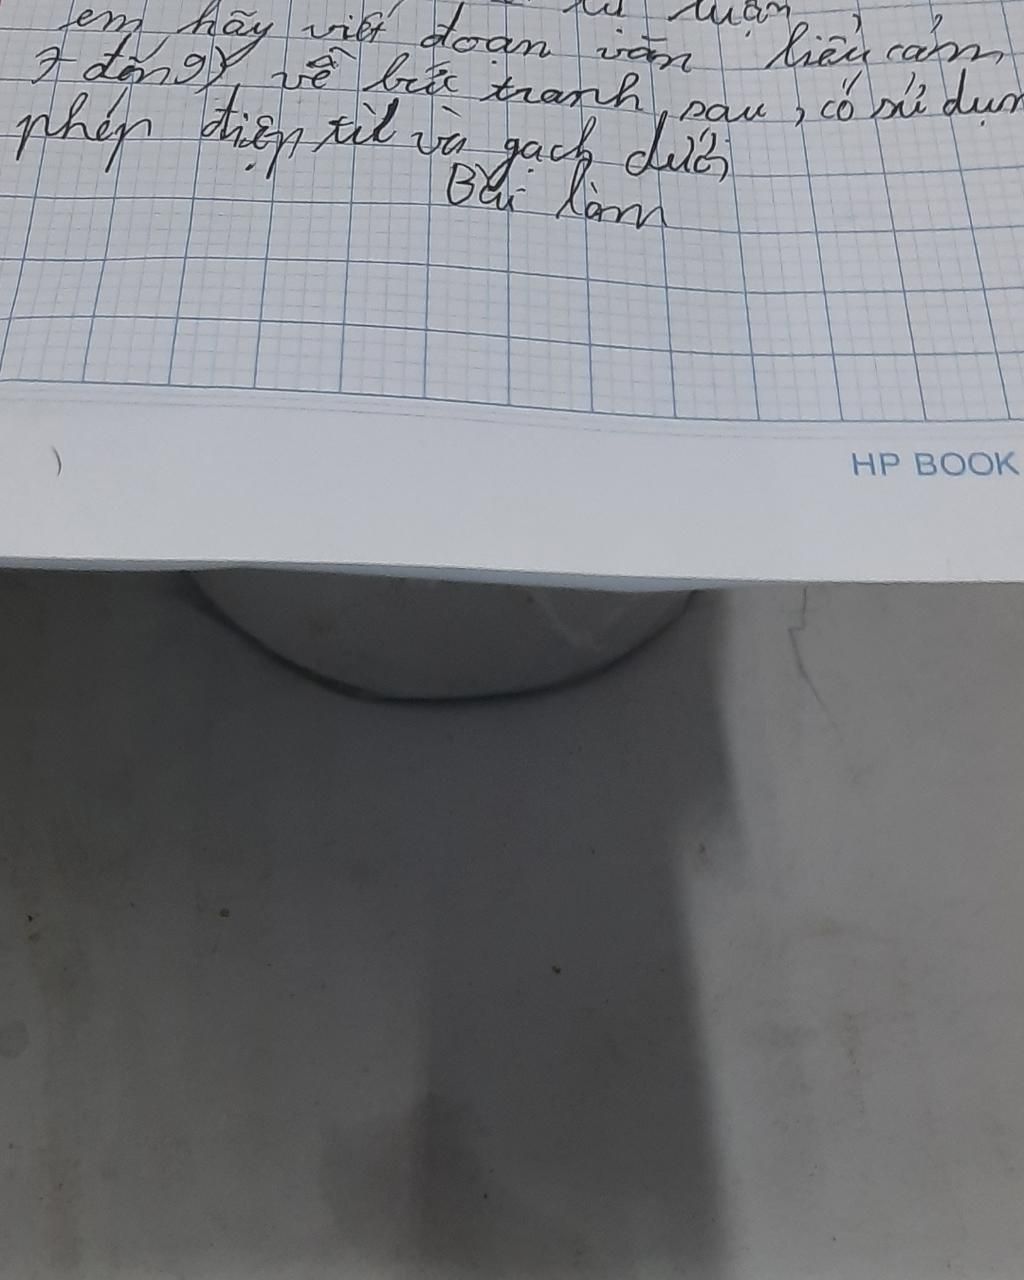 tự luận
em hãy viết đoạn văn biểu cảm
7 đến 9 về bức tranh sau, có sử dụn
phép điệp từ và gạch dưới
Bài làm
HP BOOK